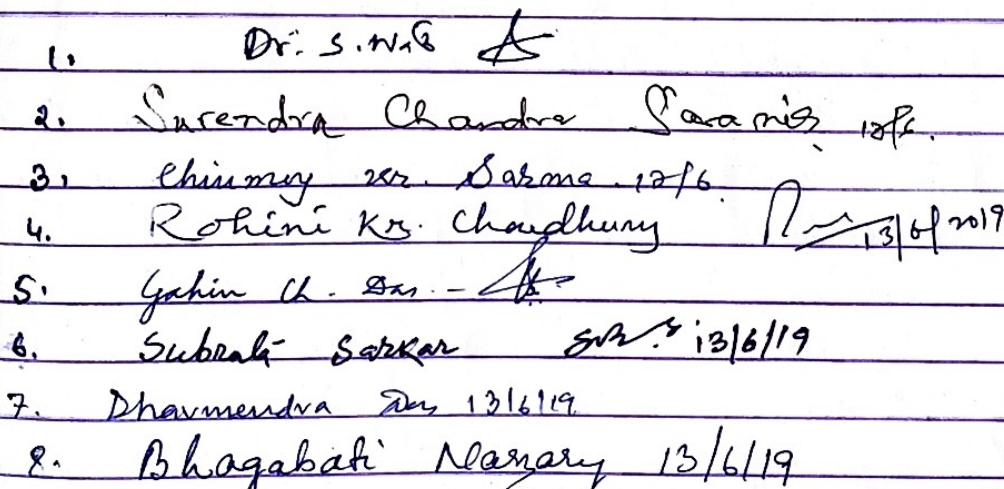 1. Dr. S.
2. Surendra Chandra
3. Chinmoy Kr. Sarma. 12/6
4. Rohini Kr. Choudhury 13/6/2019
5. Gahin Ch. Das. -
6. Subrata Sarkar 13/6/19
7. Dharmendra Das 13/6/19
8. Bhagabati Narzary 13/6/19